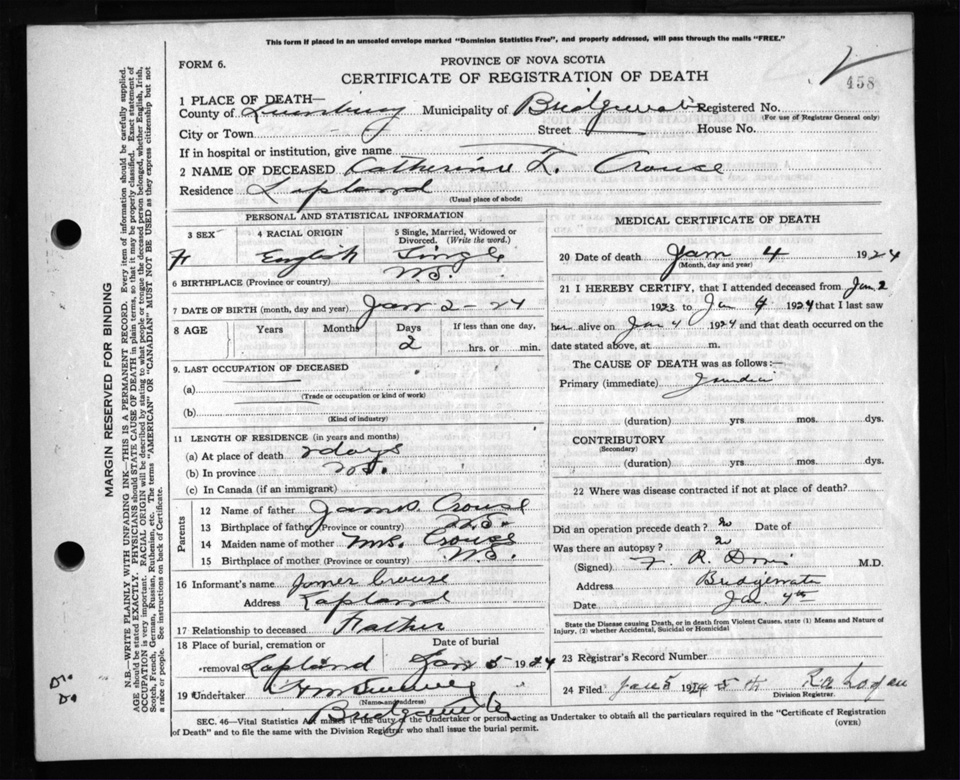 This form if placed in an unsealed envelope marked "Dominion Statistics Free", and properly addressed, will pass through the mails "FREE."
FORM 6.
PROVINCE OF NOVA SCOTIA
CERTIFICATE OF REGISTRATION OF DEATH
458
1 PLACE OF DEATH—
County of Lunenburg Municipality of Bridgewater Registered No.
(For use of Registrar General only)
City or Town Street House No.
If in hospital or institution, give name
2 NAME OF DECEASED Catherine L. Crouse
Residence Lapland
(Usual place of abode)
PERSONAL AND STATISTICAL INFORMATION
3 SEX 4 RACIAL ORIGIN 5 Single, Married, Widowed or Divorced. (Write the word.)
English Single
6 BIRTHPLACE (Province or country) N.S.
7 DATE OF BIRTH (month, day and year) Jan 2 - 24
8 AGE Years Months Days If less than one day,
2 hrs. or min.
9 LAST OCCUPATION OF DECEASED
(a)
(Trade or occupation or kind of work)
(b)
(Kind of industry)
11 LENGTH OF RESIDENCE (in years and months)
(a) At place of death 2 days
(b) In province N.S.
(c) In Canada (if an immigrant)
Parents
12 Name of father James Crouse
13 Birthplace of father (Province or country) N.S.
14 Maiden name of mother Mrs. Crouse
15 Birthplace of mother (Province or country) N.S.
16 Informant's name James Crouse
Address Lapland
17 Relationship to deceased Father
18 Place of burial, cremation or removal Lapland Date of burial Jan 5 1924
19 Undertaker
(Name and address)
Bridgewater
MEDICAL CERTIFICATE OF DEATH
20 Date of death Jan 4 1924
(Month, day and year)
21 I HEREBY CERTIFY, that I attended deceased from Jan 2
1923 to Jan 4 1924 that I last saw
her alive on Jan 4 1924 and that death occurred on the
date stated above, at m.
The CAUSE OF DEATH was as follows:—
Primary (immediate) Jaundice
(duration) yrs. mos. dys.
CONTRIBUTORY
(Secondary)
(duration) yrs. mos. dys.
22 Where was disease contracted if not at place of death?
Did an operation precede death? no Date of
Was there an autopsy? no
(Signed) R. M.D.
Address Bridgewater
Date Jan. 4th
State the Disease causing Death, or in death from Violent Causes, state (1) Means and Nature of Injury, (2) whether Accidental, Suicidal or Homicidal
23 Registrar's Record Number
24 Filed Jan 5 19 R. A. Logan
Division Registrar.
SEC. 46—Vital Statistics Act makes it the duty of the Undertaker or person acting as Undertaker to obtain all the particulars required in the "Certificate of Registration
of Death" and to file the same with the Division Registrar who shall issue the burial permit.
(OVER)
MARGIN RESERVED FOR BINDING
N.B.—WRITE PLAINLY WITH UNFADING INK—THIS IS A PERMANENT RECORD. Every item of information should be carefully supplied.
AGE should be stated EXACTLY. PHYSICIANS should STATE CAUSE OF DEATH in plain terms, so that it may be properly classified. Exact statement of
OCCUPATION is very important. RACIAL ORIGIN will be described by stating to what people or tongue the deceased person belonged, whether English, Irish,
Scotch, French, German, Russian, Ruthenian, etc. The terms "AMERICAN" OR "CANADIAN" MUST NOT BE USED as they express citizenship but not
a race or people. See instructions on back of Certificate.